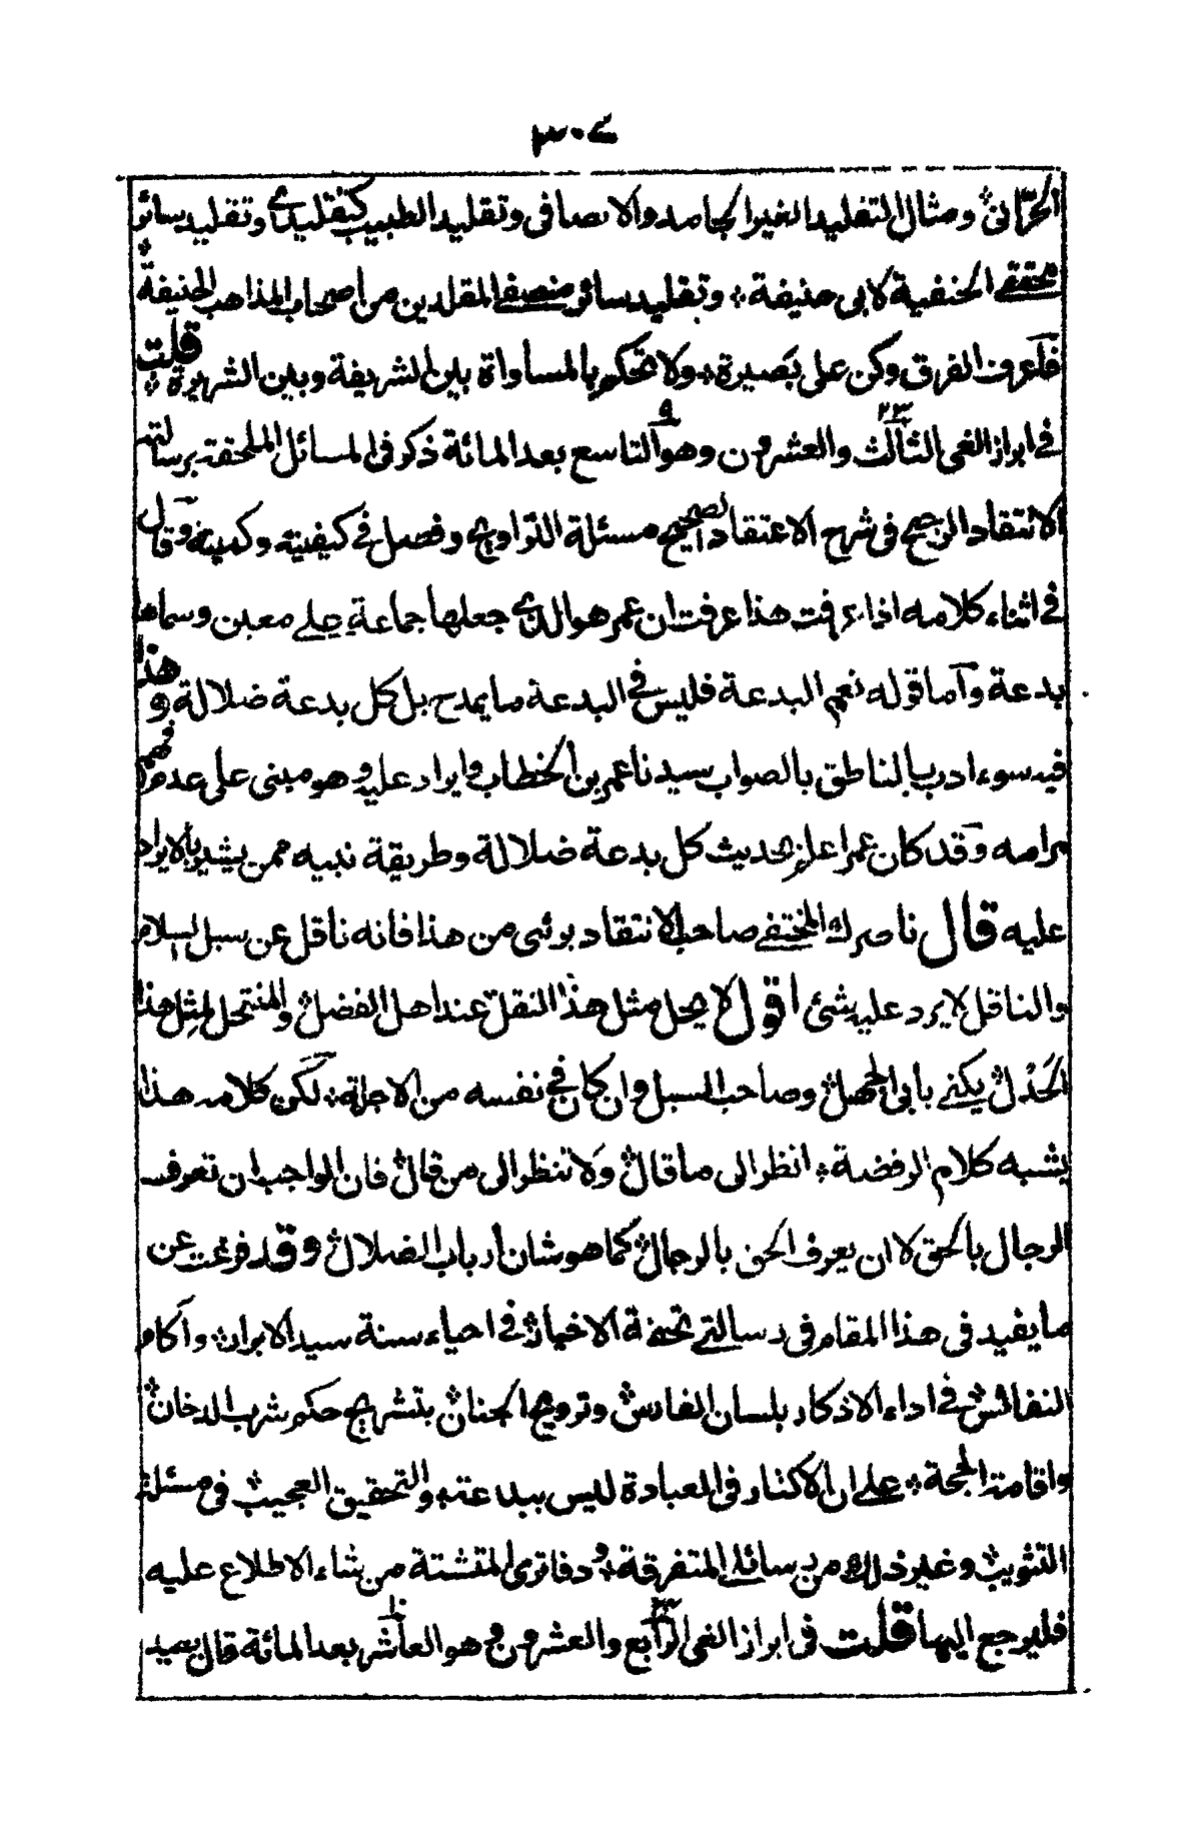 ٣٠٤
الحرّاني ومثال التقليد الغير الجامد والانصافي وتقليد الطبيب كتقليدي وتقليد سائر
محققي الحنفية لابي حنيفة وتقليد سائر منصفي المقلدين من اصحاب المذاهب الحنيفة
فلعرف الفرق وكن على بَصيرة ولا تحكم بالمساواة بين الشريفة وبين الشريرة قلت
في ابراز الغي الثالث ٢٣ والعشرون وهو التاسع ٩ بعد المائة ذكر في المسائل الملحقة برسالته
الانتقاد الرجيح في شرح الاعتقاد الصحيح مسئلة التراويح وفصل في كيفيته وكميته وقال
في اثناء كلامه اذا عرفت هذا عرفت ان عمر هو الذي جعلها جماعة على معين وسماها
بدعة وآما قوله نعم البدعة فليس في البدعة ما يمدح بل كل بدعة ضلالة وهذا
فيه سوء ادب بالناطق بالصواب سيدنا عمر بن الخطاب وايراد عليه وهو مبنى على عدم فهم
مرامه وقد كان عمر اعلم بحديث كل بدعة ضلالة وطريقة نبيه ممن يشير بالايراد
عليه قال ناصرك المختفي صاحب الانتقاد بوئى من هذا فانه ناقل عن سبل السلام
والناقل لا يرد عليه شئ اقول لا يحل مثل هذا النقل عند اهل الفضل والمنتحل لمثل هذا
الخَذل يكنى بأبي الجهل وصاحب السبل وان كان في نفسه من الاجلة لكن كلامه هذا
يشبه كلام الرفضة انظر الى ما قال وَلا تنظر الى من قال فان الواجب ان تعرف
الرجال بالحق لا ان يعرف الحق بالرجال كما هو شان أرباب الضلال وقد فرغت عن
ما يفيد في هذا المقام في رسالتي تحفة الاخيار في احياء سنة سيد الابرار وآكام
النفائس في اداء الاذكار بلسان الفارس وترويح الجنان بتشريح حكم شرب الدخان
واقامة الحجة على ان الاكثار في العبادة ليس ببدعة والتحقيق العجيب في مسئلة
التثويب وغير ذلك من رسائلي المتفرقة ودفاترى المتشتة من شاء الاطلاع عليه
فليرجع اليها قلت في ابراز الغي الرابع ٢٤ والعشرون وهو العاشر ١٠ بعد المائة قال بعيد